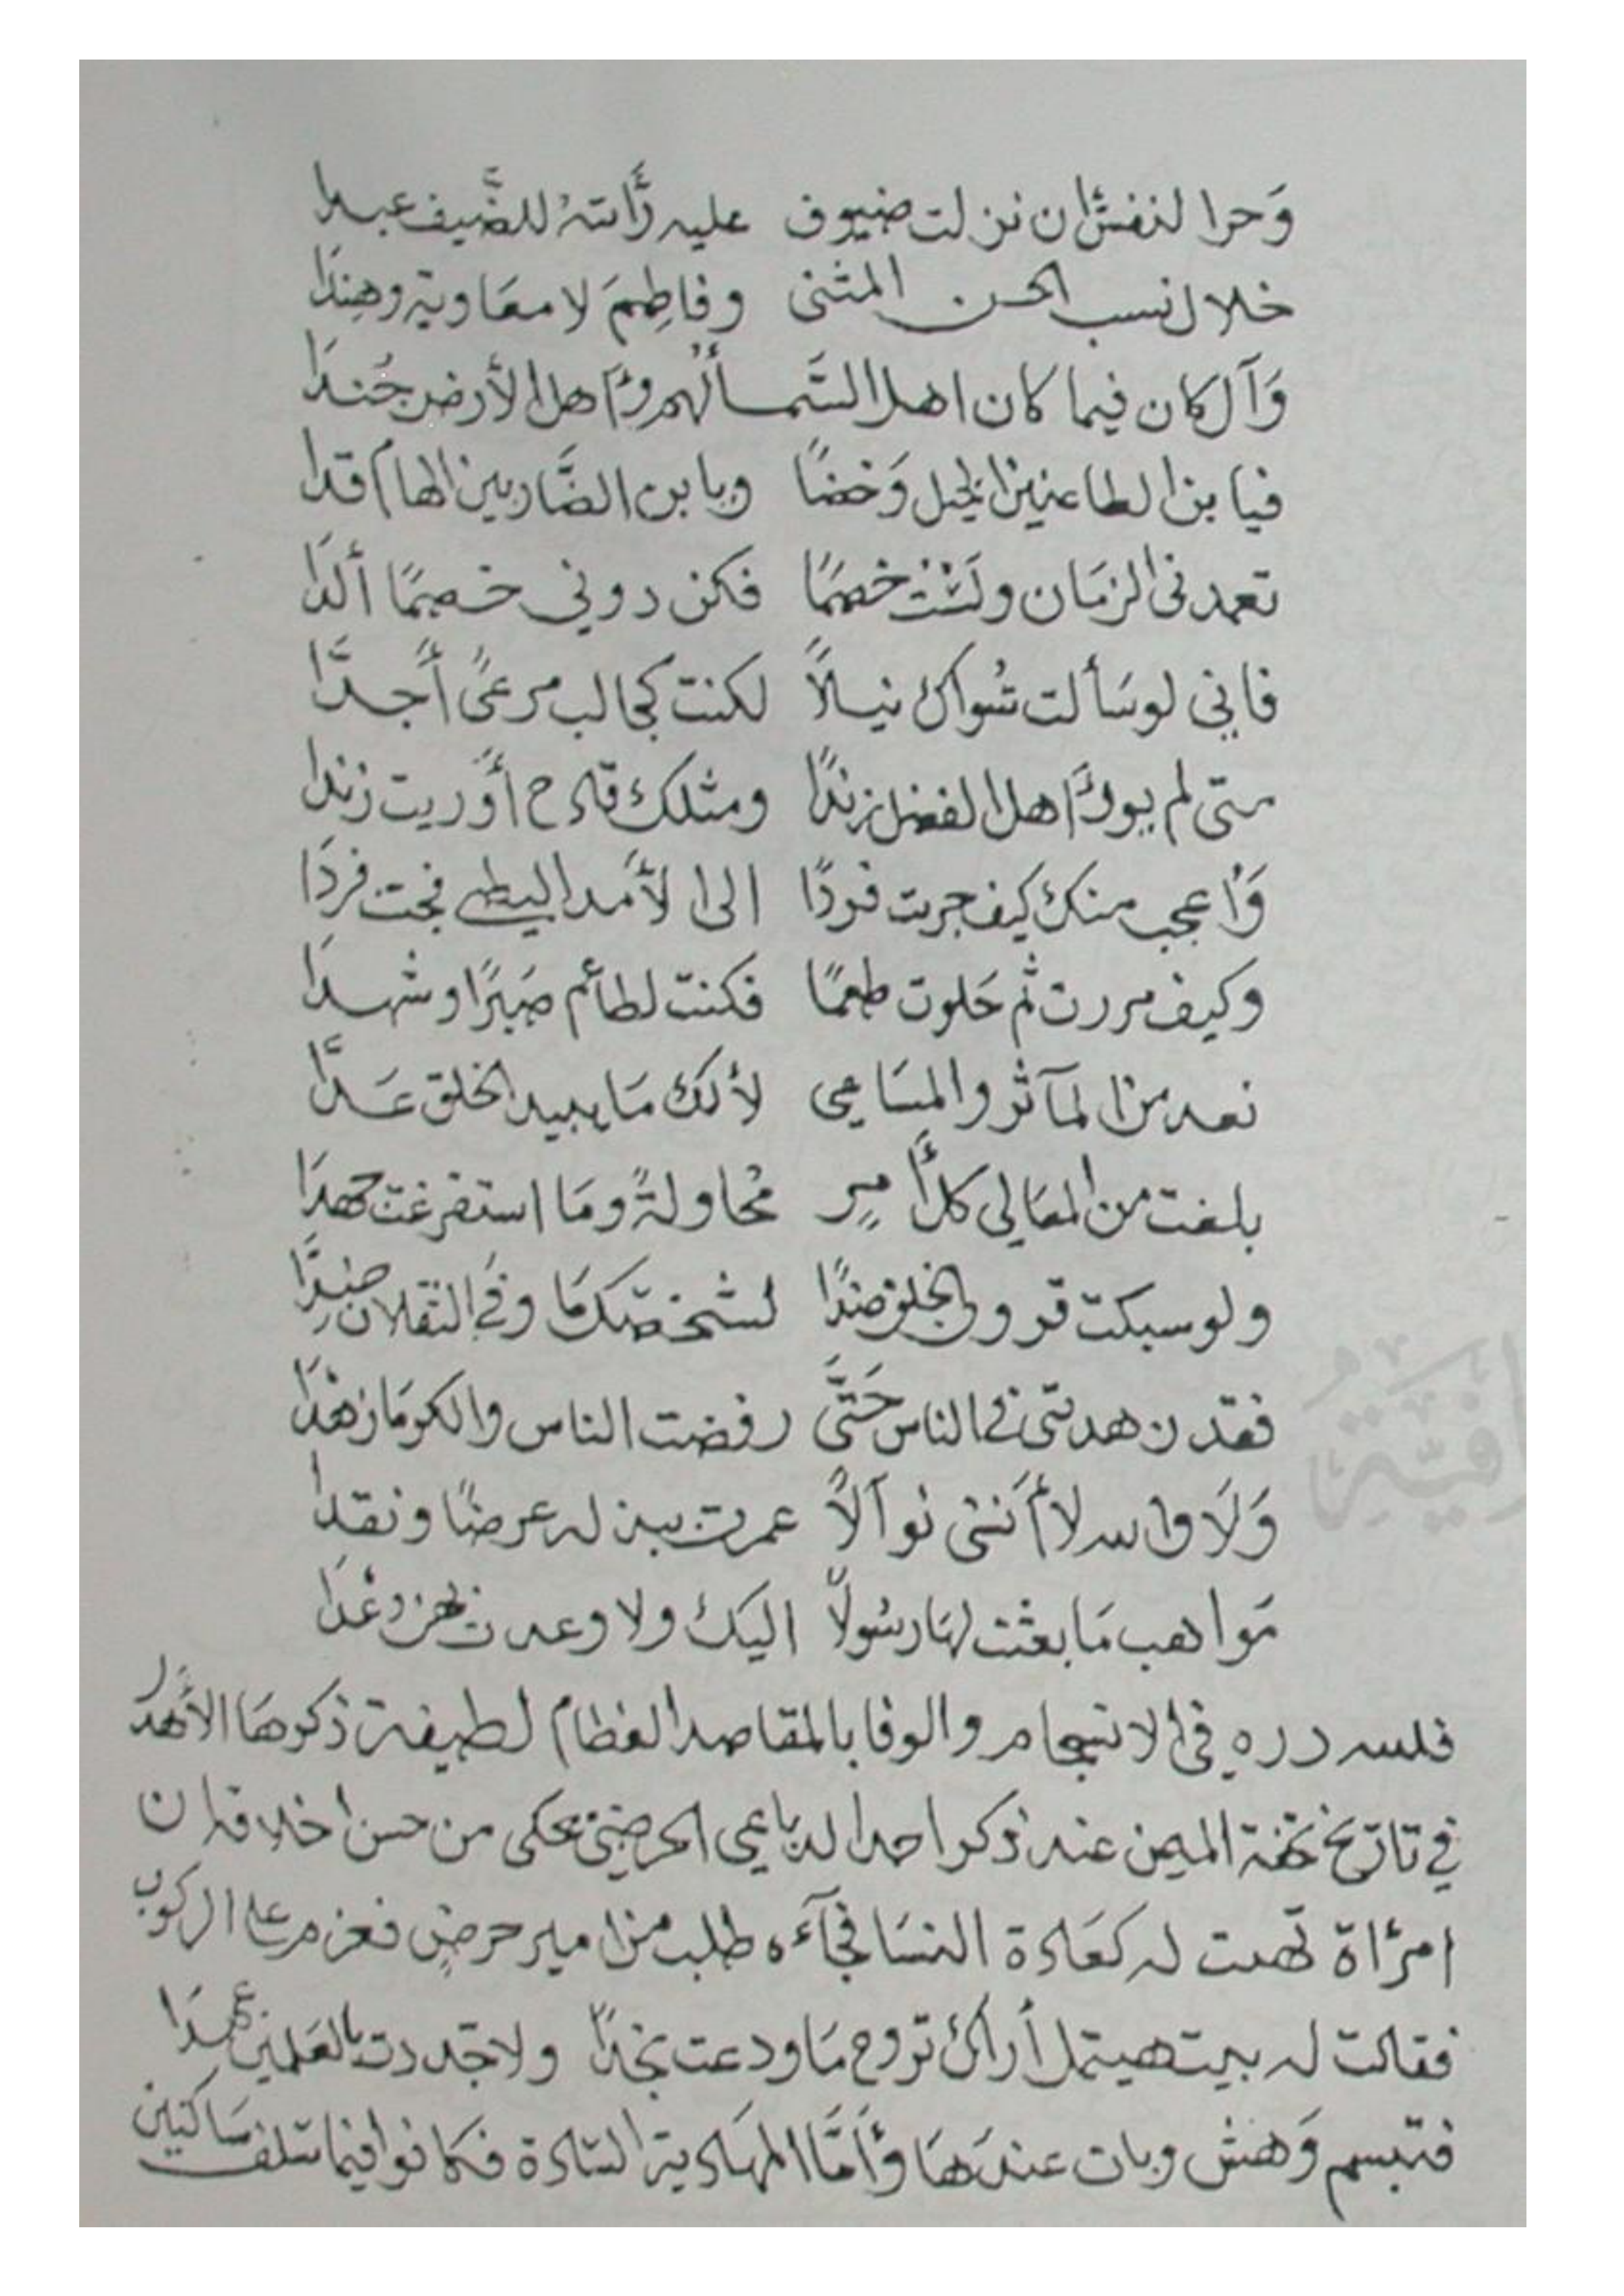 وَحرا لنفسٌ ان نزلت ضيوف عليه رَّأسَته للضَّيف عبدا
خلال نسب الحسن المثنى وفاطِمَ لا معَاوية وهِندَا
وَآل كان فيما كان اهل السَّما لهم وَأهل الأرض جُندَا
فيا بن الطاعنين الخيل وَخضًا ويا بن الضَّاربين الهام قدا
تعمدنى الزمَان ولَسْتُ خصمًا فكن دوني خصمًا ألدَا
فاني لو سَألت سُواك نيلاً لكنت كجالب مرعىً أجدَّا
متى لم يور أهل الفضل زندًا ومثلك قادح أوريت زندا
وَأعجب منك كيف جريت فردًا الى الأمد البطى فجئت فردَا
وكيف مررت ثم حَلوت طعمًا فكنت لطائم صَبرًا وشهدَا
نعد من المآثر والمسَاعي لأنك مَا يبيد الخلق عَدَّا
بلغت من المعَالى كل أمرٍ مُحاولةً ومَا استفرغت جهدَا
ولو سبكت قرون الخلق ضدًا لشخصك مَا وفى الثقلان ضِدَّا
فقد زهدتنى في الناس حَتَّى رفضت الناس والكرمَا زهْدَا
وَلاَ والله لا أنسى نوآلاً عمرت ببذله عرضًا ونقدا
مَواهب مَا بعثت لهَا رسُولاً اليك ولا وعدت بهن وعْدَا
فلله دره في الانسجام والوفا بالمقاصد العظام لطيفة ذكرهَا الأهدَل
في تاريخ تحفة الزمن عند ذكر احد الرباعي الحرضي يحكى من حسن اخلاقه ان
امرأة تهمت له كعَادة النسَا فجآءه طلب من امير حرضٍ فعزم على الركوب
فقالت له بيت هيتمل أراك تروح مَا ودعت نجدًا ولا جددت بالعَلمين عهدَا
فتبسم وَهش وبات عندَهَا وأمَّا المهَادية السَّادة فكانوا فيما سلف سَاكنين